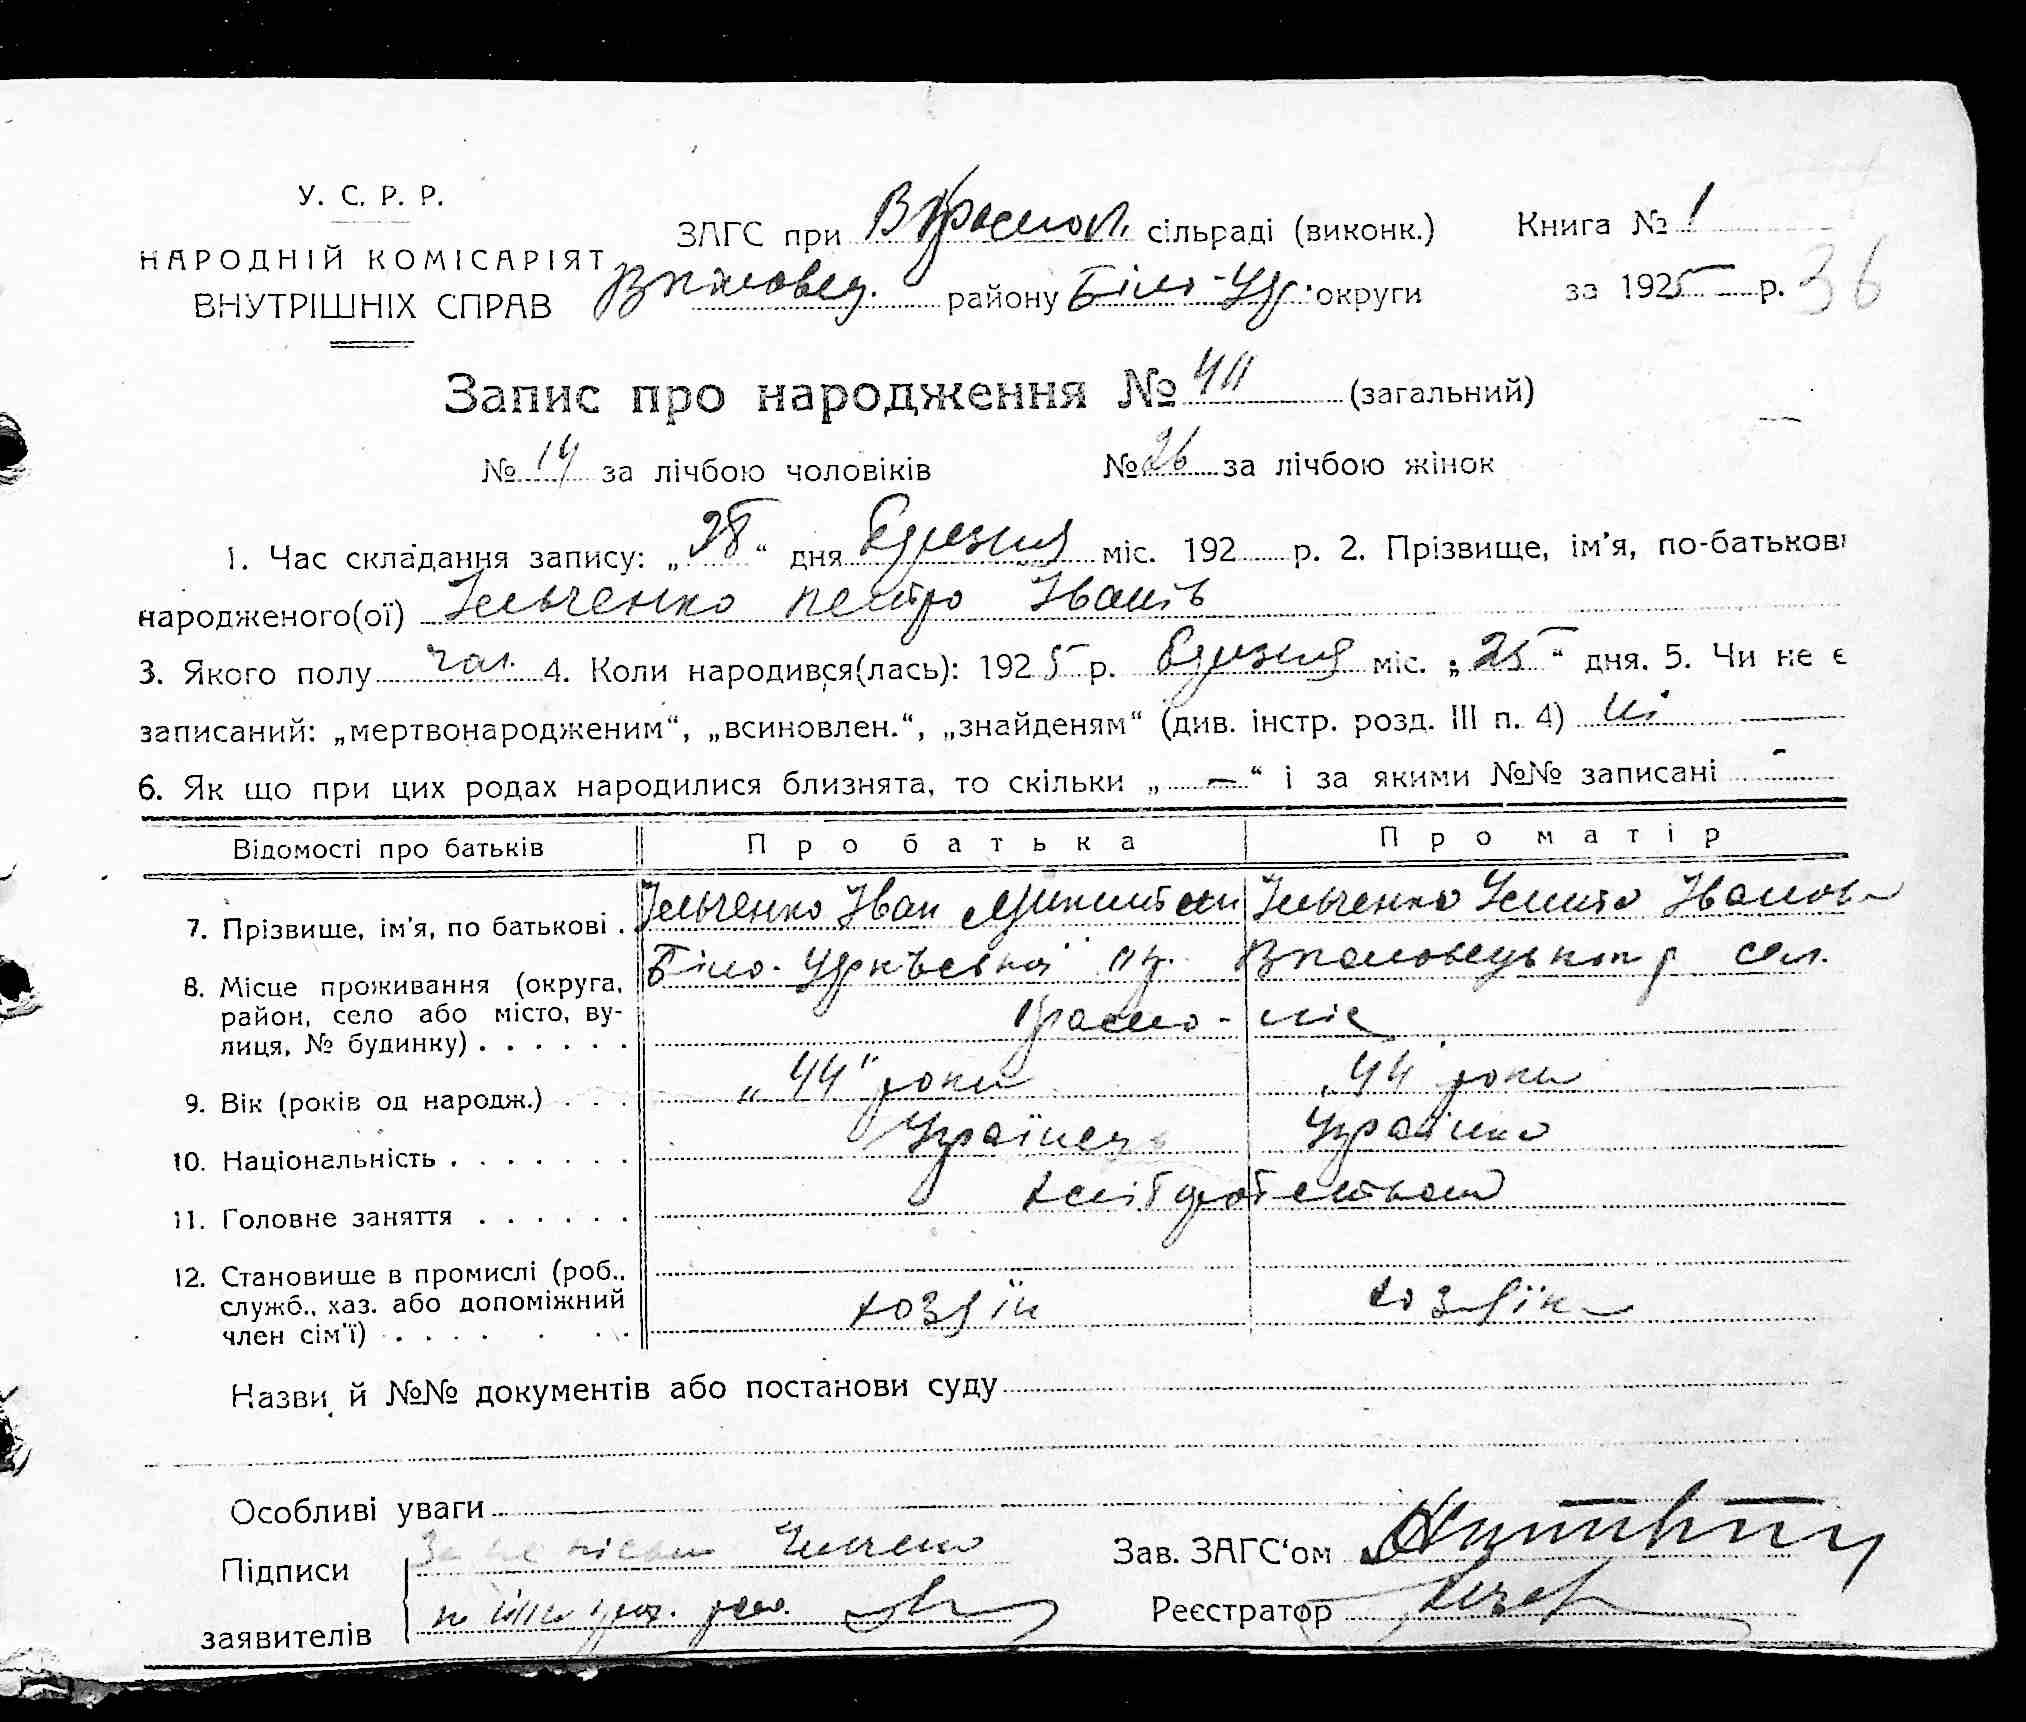 У. С. Р. Р.
НАРОДНІЙ КОМІСАРІЯТ
ВНУТРІШНІХ СПРАВ
ЗАГС при сільраді (виконк.)
району Біло-Цер. округи
Книга № 1
за 1925 р. 36
Запис про народження № 40 (загальний)
№ 14 за лічбою чоловіків № 26 за лічбою жінок
1. Час складання запису: „28“ дня березня міс. 192 р. 2. Прізвище, ім'я, по-батькові
народженого(ої) Ільченко Петро Іванів
3. Якого полу чол. 4. Коли народився(лась): 1925 р. березня міс. „25“ дня. 5. Чи не є
записаний: „мертвонародженим“, „всиновлен.“, „знайденям“ (див. інстр. розд. III п. 4) ні
6. Як що при цих родах народилися близнята, то скільки „—“ і за якими №№ записані -
Відомості про батьків Про батька Про матір
7. Прізвище, ім'я, по батькові . Ільченко Іван Ільченко Іванов
8. Місце проживання (округа, район, село або місто, вулиця, № будинку) . . . . . . Біло-Церківської ок. сел.
Красно-ліс
9. Вік (років од народж.) . . . „44“ роки „44 роки
10. Національність . . . . . . . Українець Українка
11. Головне заняття . . . . . . хліборобством
12. Становище в промислі (роб., служб., хаз. або допоміжний член сім'ї) . . . . . . . хозяїн хозяїка
Назви й №№ документів або постанови суду
Особливі уваги
Підписи
заявителів
Зав. ЗАГС'ом
Реєстратор